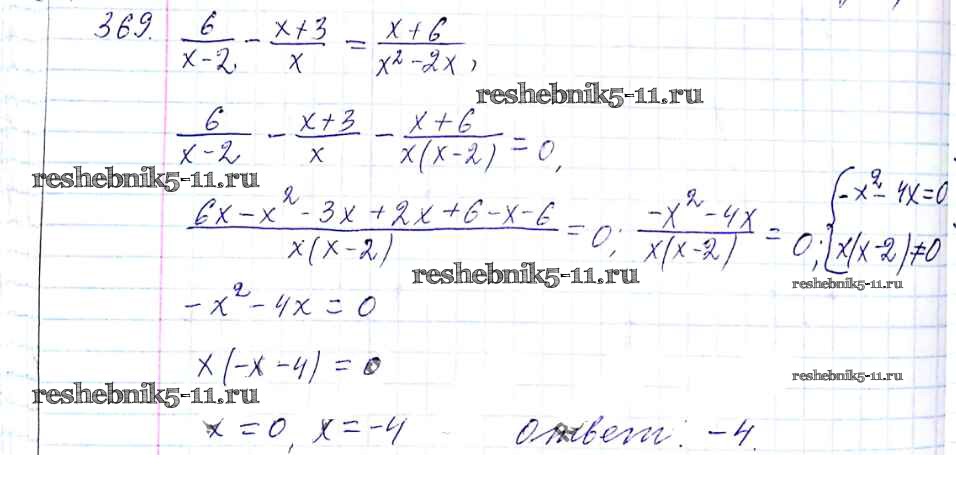 369. 6/(x-2) - (x+3)/x = (x+6)/(x² - 2x),
reshebnik5-11.ru
6/(x-2) - (x+3)/x - (x+6)/(x(x-2)) = 0,
reshebnik5-11.ru
(6x - x² - 3x + 2x + 6 - x - 6)/(x(x-2)) = 0; (-x² - 4x)/(x(x-2)) = 0; { -x² - 4x = 0
x(x-2) ≠ 0
reshebnik5-11.ru
reshebnik5-11.ru
-x² - 4x = 0
x(-x-4) = 0
reshebnik5-11.ru
reshebnik5-11.ru
x = 0, x = -4 Ответ: -4.